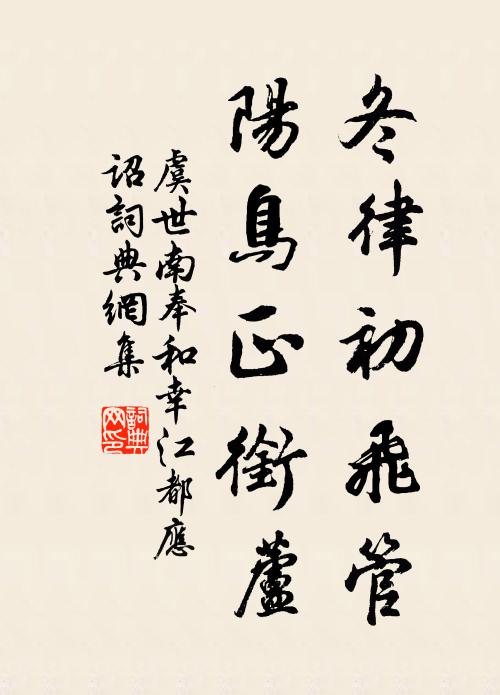 冬律初飛管
陽鳥正銜蘆
虞世南奉和幸江都應
詔詞典網集
詞典
网印